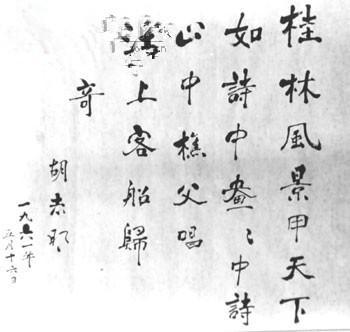 桂林風景甲天下
如詩中畫〻中詩
山中樵父唱
上客船歸
奇
胡志明
一九六一年
五月十六日